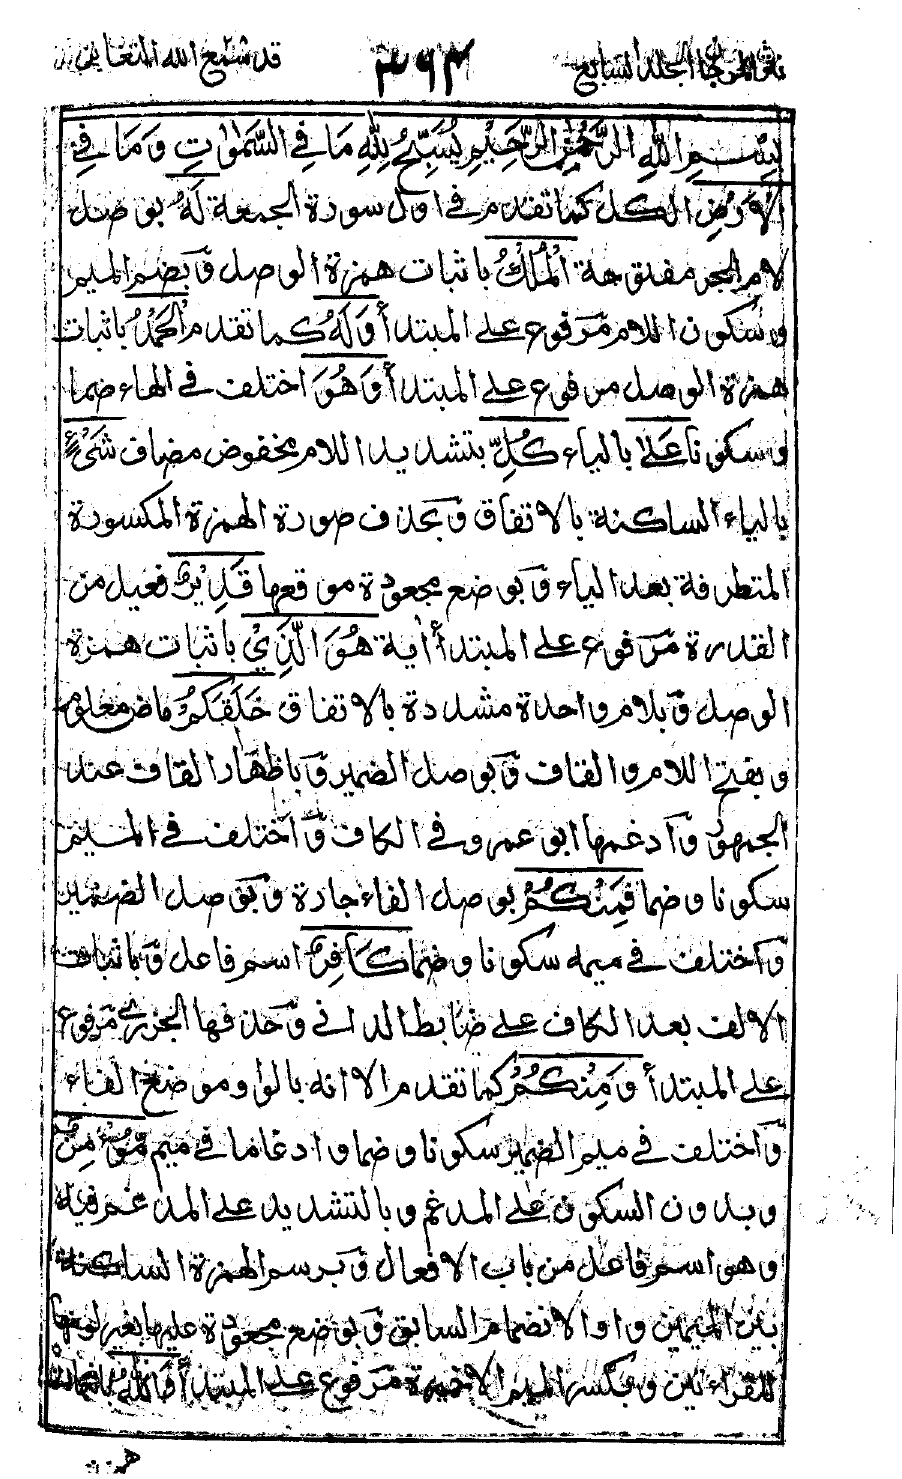 نثر المرجان الجلد السابع ٣٦٣ قد سمع الله التغابن
بِسْمِ اللهِ الرَّحْمٰنِ الرَّحِيْمِ يُسَبِّحُ لِلّٰهِ مَا فِي السَّمٰوٰتِ وَمَا فِي
الْاَرْضِ الكل كما تقدم في اول سورة الجمعة لَهُ بوصل
لام الجر مفتوحة الْمُلْكُ باثبات همزة الوصل وَبضم الميم
وسكون اللام مَرفوع على المبتدأ وَلَهُ كما تقدم الْحَمْدُ باثبات
همزة الوصل مرفوع على المبتدأ وَهُوَ اختلف في الهاء ضما
وسكونا عَلٰى بالياء كُلِّ بتشديد اللام مخفوض مضاف شَيْءٍ
بالياء الساكنة بالاتفاق وَبحذف صورة الهمزة المكسورة
المتطرفة بعد الياء وَبوضع مجعودة موقعها قَدِيْرٌ فعيل من
القدرة مَرفوع على المبتدأ اٰية هُوَ الَّذِيْ باثبات همزة
الوصل وَبلام واحدة مشددة بالاتفاق خَلَقَكُمْ ماض معلوم
وبفتح اللام والقاف وَبوصل الضمير وَباظهار القاف عند
الجمهور وَادغمها ابو عمرو في الكاف وَاختلف في الميم
سكونا وضما فَمِنْكُمْ بوصل الفاء جارة وَبوصل الضمير
وَاختلف في ميمه سكونا وضما كَافِرٌ اسم فاعل وَباثبات
الالف بعد الكاف على ضابط الداني وَحذفها الجزري مَرفوع
على المبتدأ وَمِنْكُمْ كما تقدم الا انه بالواو موضع الفاء
وَاختلف في ميم الضمير سكونا وضما وادغاما في ميم مُّؤْمِنٌ
وبدون السكون على المدغم وبالتشديد على المدغم فيه
وهو اسم فاعل من باب الافعال وَبرسم الهمزة الساكنة
بين الميمين واوا لانضمام السابق وَبوضع مجعودة عليها بغير لونها
للقراءتين وبكسر الميم الاخيرة مَرفوع على المبتدأ وَاللّٰهُ باثبات
همزة